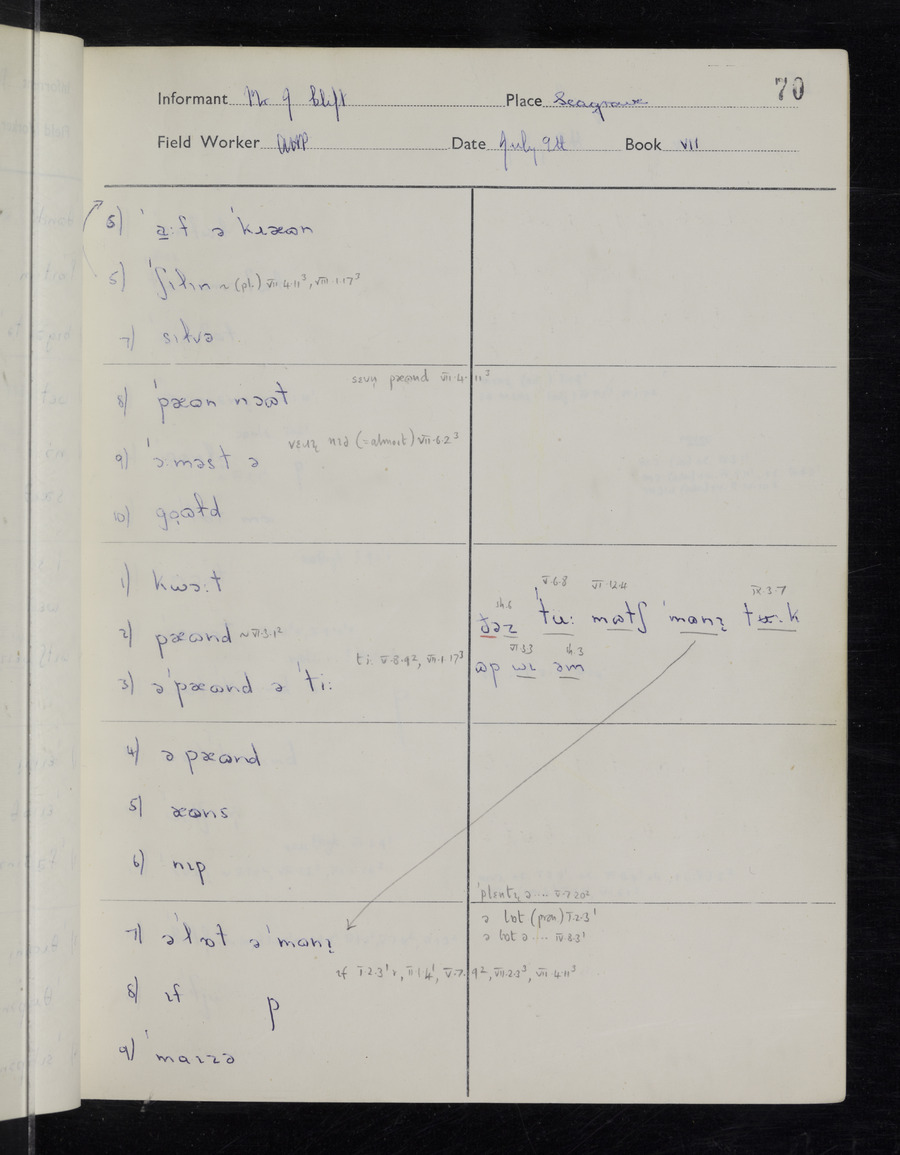 70
Informant Mr J Clift Place Seagrave
Field Worker Date July 9th Book VII
5) ˈa̱:f ə ˈkɹæʊn
5) ˈʃɪlɪn ~ (pl.) VII·4·11³, VIII·1·17³
7) sɪlvə
sɛvn̩ pæʊnd VII·4·11³
8) ˈpæʊn nɔʊt
vɛɹɪ̣ nɪə (=almost) VII·6·2³
9) ˈɔ:məst ə
10) gọʊɫd
1) kwɔ:t
2) pæʊnd ~ VI·3·1²
ti: V·8·9², VII·1·17³
3) əˈpæʊnd ə ˈti:
4) ə pæʊnd
5) æʊns
6) nɪp
sh.6 V·6·8 VI·12·4 IX·3·7
ðəz ˈtu: mʊtʃ ˈmʊnɪ̣ tʊ:k
VI·3·3 sh.3
ʊp wɪ əm
ˈplentɪ̣ ə .... V·7·20²
7) əˈlɒt ə ˈmʊnɪ̣
ə lɒt (pron) I·2·3¹
ə lɒt ə .... IV·8·3¹
ɪf I·2·3¹ʳ, II·1·4¹, V·7·19², VII·2·3³, VII·4·11³
8) ɪf p
9) ˈmaɪzə